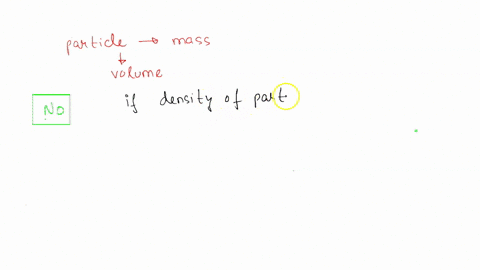 particle → mass
↓
volume
No
if density of part